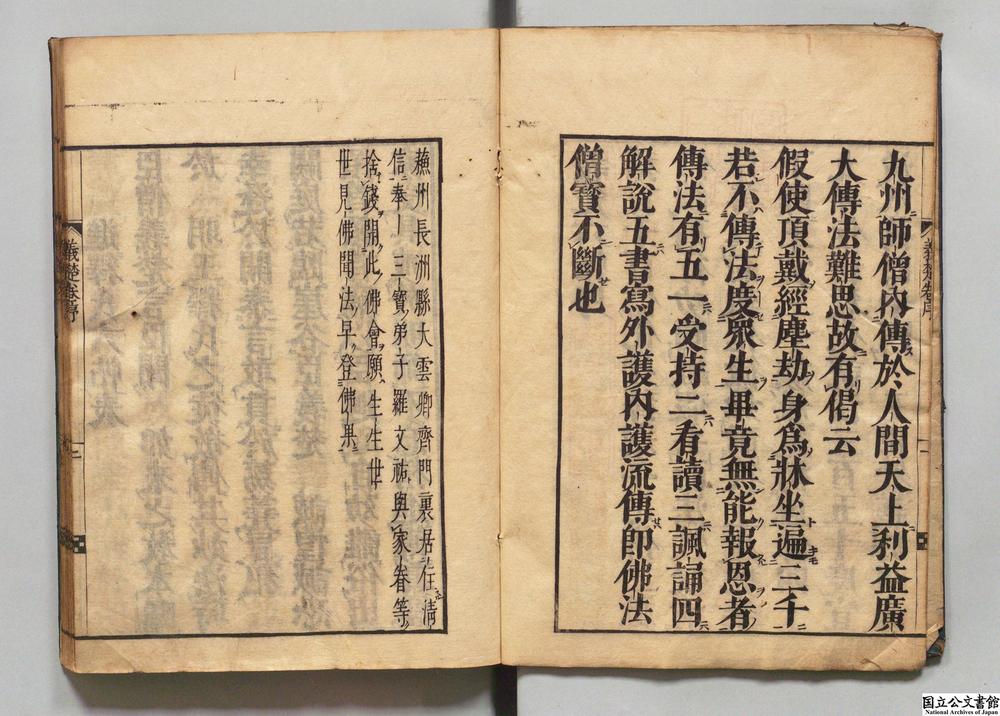 九州師僧內傳於人間天上利益廣
大傳法難思故有偈云
假使頂戴經塵劫身爲牀坐遍三千
若不傳法度衆生畢竟無能報恩者
傳法有五一受持二看讀三諷誦四
解說五書寫外護內護流傳即佛法
僧寶不斷也
義楚卷序
蘓州長洲縣大雲卿齊門裏居住清
信奉三寶弟子羅文祐與家眷等
捨錢開此佛會願生生世
世見佛聞法早登佛果
義楚卷序
国立公文書館
National Archives of Japan